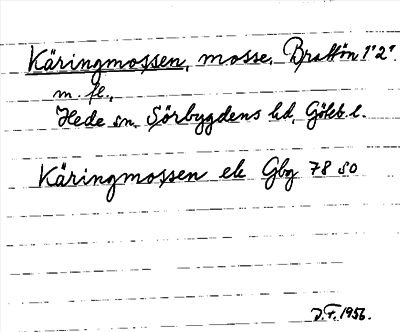 Käringmossen, mosse, Brattön 1¹2¹.
m. fl.,
Hede sn. Sörbygdens hd, Göteb. l.
Käringmossen ek Gbg 78 so
D.F. 1956.